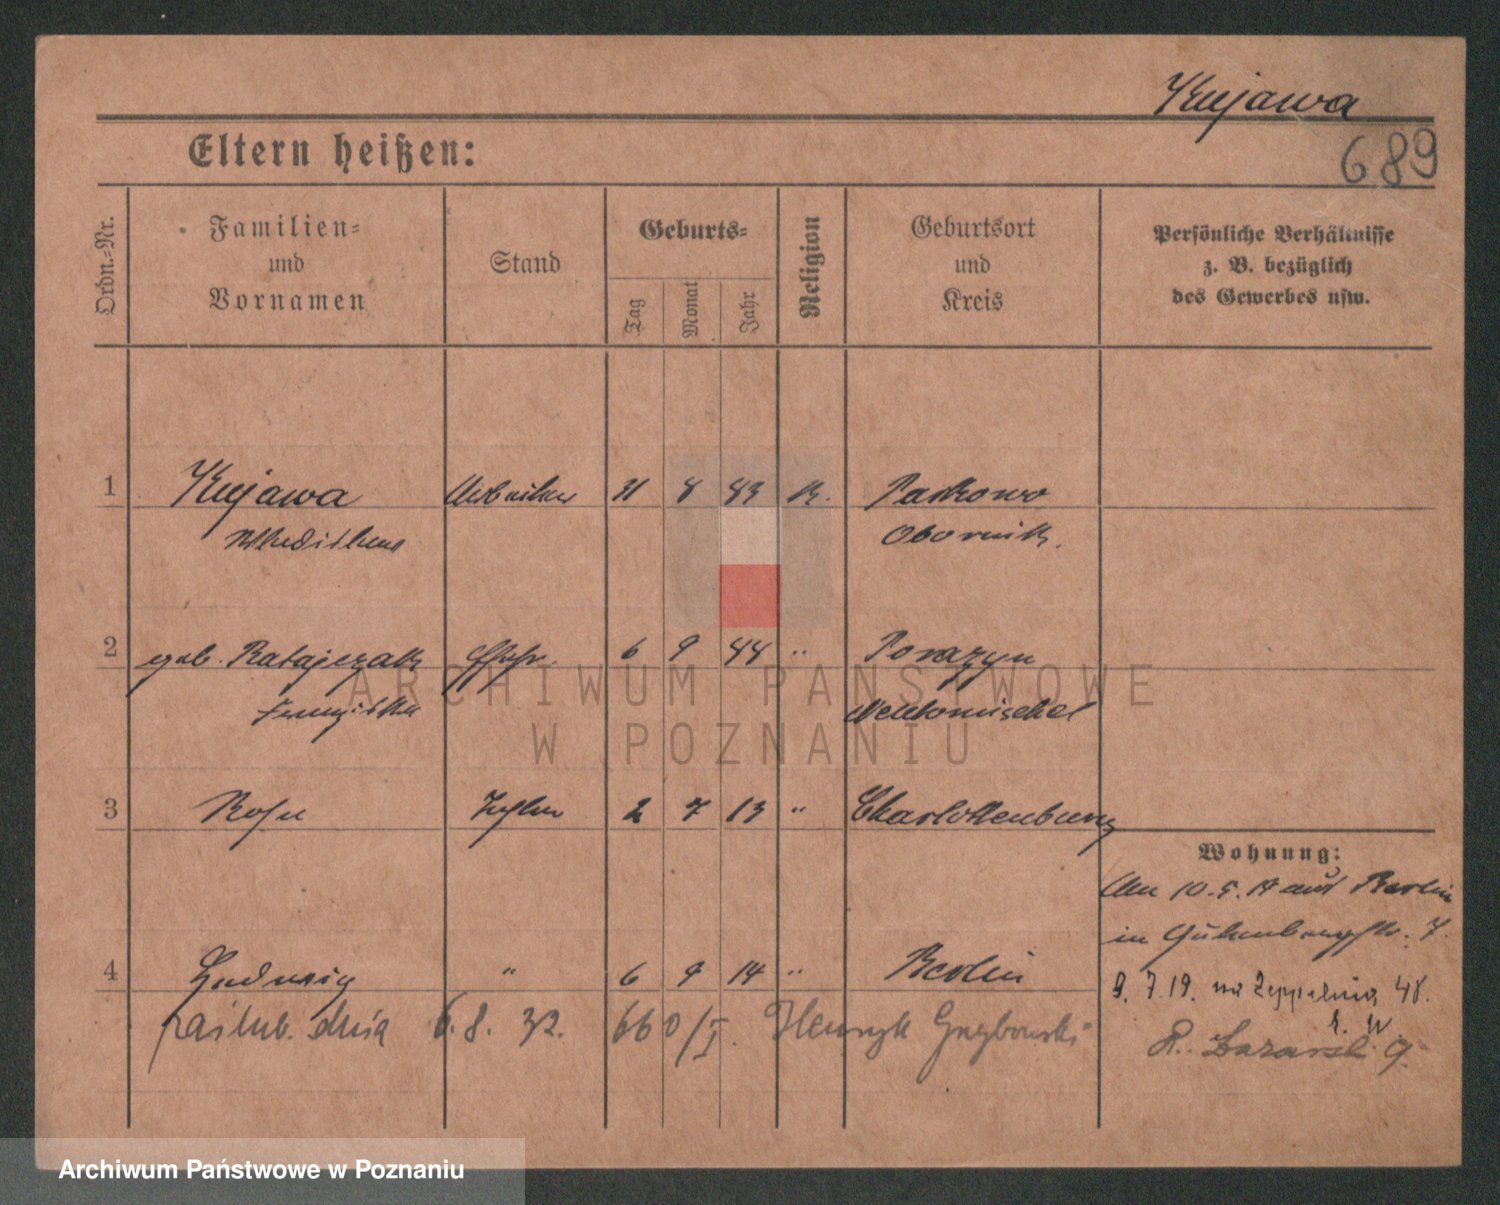 Kujawa
689
Eltern heißen:
Ordn.-Nr.
Familien- und Vornamen
Stand
Geburts-
Tag
Monat
Jahr
Religion
Geburtsort und Kreis
Persönliche Verhältnisse z. B. bezüglich des Gewerbes usw.
1 Kujawa Arbeiter 31 8 83 K. Parkowo
Obornik.
2 geb. Ratajczak Ehefr. 6 9 44 " Porazyn
Franziska Neutomischel
3 Rosa Tochter 2 7 13 " Charlottenburg
Wohnung:
Am 10.5.19 aus Berlin
in Gutenbergstr. 7.
4 Hedwig " 6 9 14 " Berlin
9.7.19. na Zeppelina 48.
zaślub. dnia 6.8.32. 660/I. Henryk Grzybowski
R. Lazarski 9.
ARCHIWUM PAŃSTWOWE
W POZNANIU
Archiwum Państwowe w Poznaniu